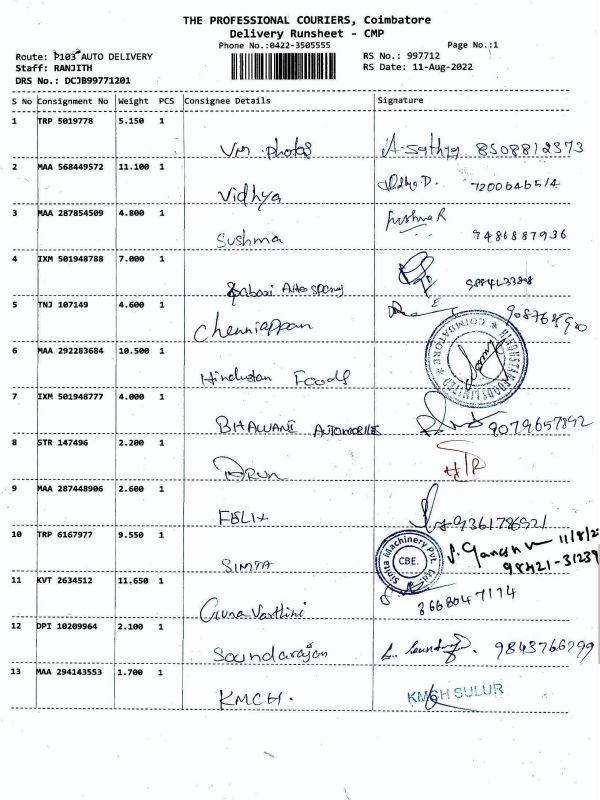 THE PROFESSIONAL COURIERS, Coimbatore
Delivery Runsheet - CMP
Phone No.:0422-3505555
Page No.:1
Route: P103 AUTO DELIVERY
RS No.: 997712
Staff: RANJITH
RS Date: 11-Aug-2022
DRS No.: DCJB99771201
S No Consignment No Weight PCS Consignee Details Signature
1 TRP 5019778 5.150 1
Vm photos A-Sathya 8508812373
2 MAA 568449572 11.100 1
Vidhya Vidhya.D. 7200646514
3 MAA 287854509 4.800 1
Sushma Sushma R
9486887936
4 IXM 501948788 7.000 1
Sabari Auto
5 TNJ 107149 4.600 1
Chenniappan
6 MAA 292283684 10.500 1
Hindustan Foods
HINDUSTAN FOODS LIMITED
COIMBATORE
7 IXM 501948777 4.000 1
BHAWANI AUTOMOBILES 9079657892
8 STR 147496 2.200 1
ARUN
9 MAA 287448906 2.600 1
FELIX 9361786921
10 TRP 6167977 9.550 1
SIMTA
Simta Machinery Pvt. Ltd.
CBE.
S. Ganesh 11/8/22
98421-31239
11 KVT 2634512 11.650 1
8668047174
12 DPI 10209964 2.100 1
Soundarajan 9843766299
13 MAA 294143553 1.700 1
KMCH. KMCH SULUR